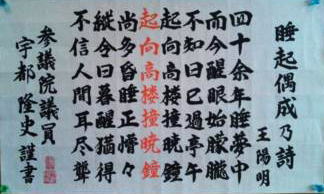 睡起偶成乃詩
王陽明
四十余年睡夢中
而今醒眼始朦朧
不知日已過亭午
起向高楼撞暁鐘
起向高楼撞暁鐘
尚多昏睡正懵々
縦令日暮醒猶得
不信人間耳尽聾
参議院議員
宇都隆史謹書